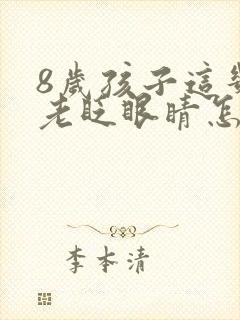 8歲孩子這
老眨眼睛怎
李本清